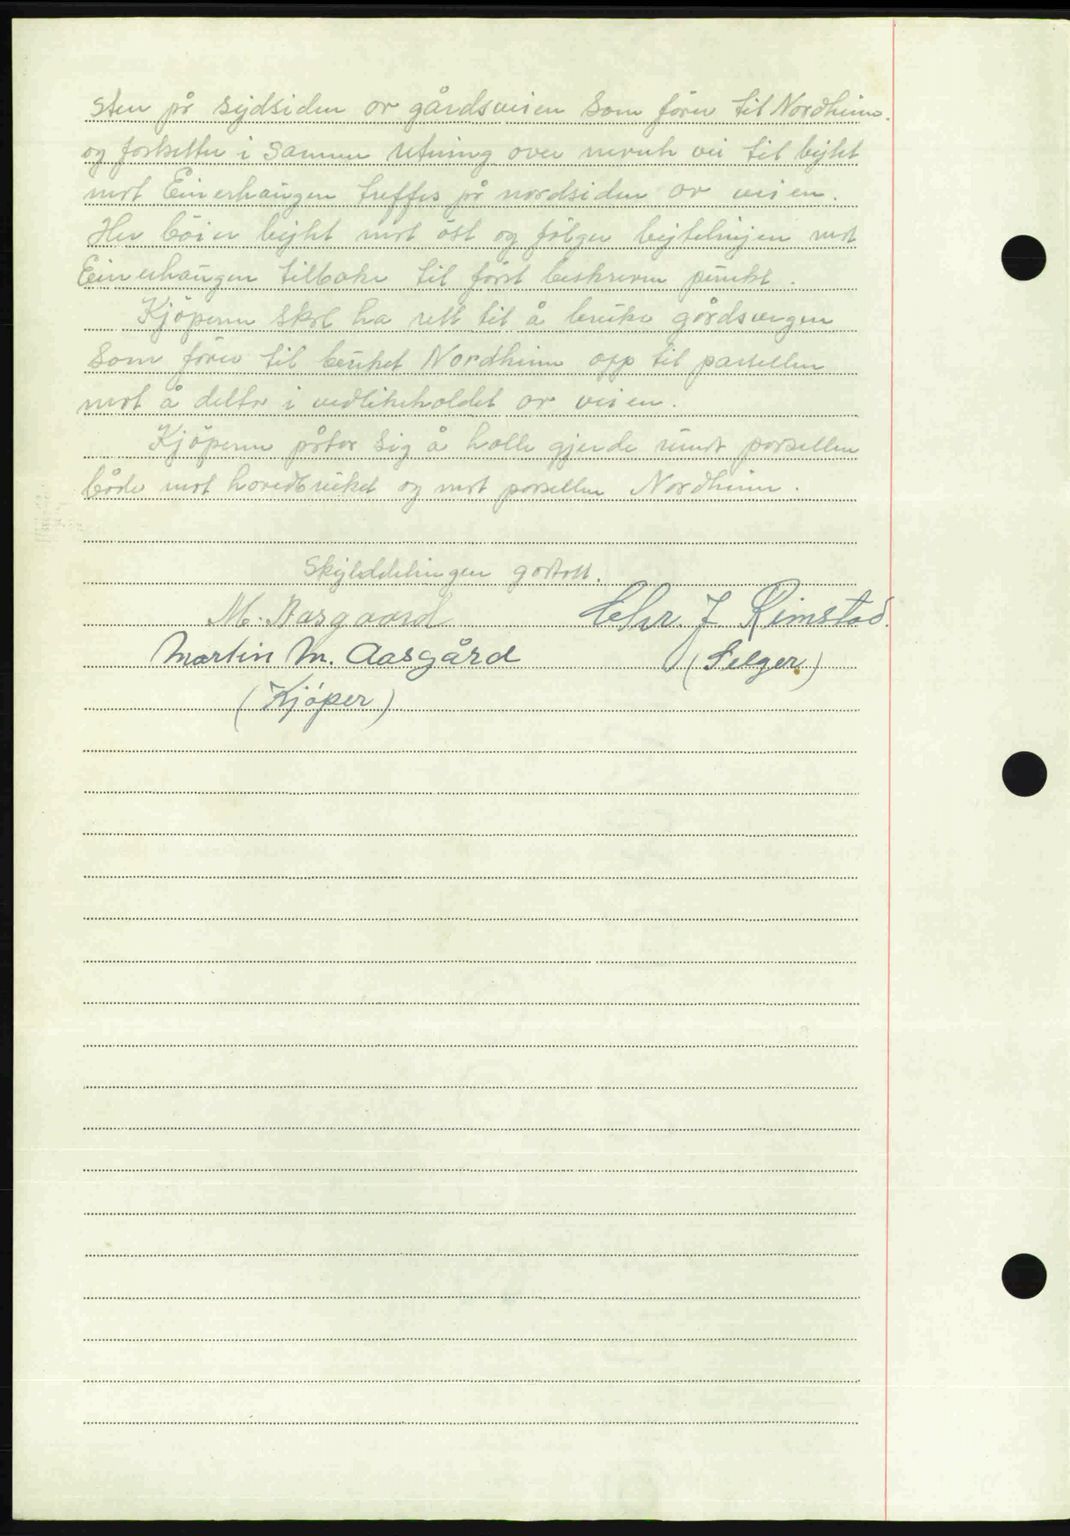 sten på sydsiden av gårdsveien som förer til Nordheim.
og fortsetter i samme retning over nevnte vei til bytet
mot Einerhaugen treffes på nordsiden av veien.
Her böier bytet mot öst og fölger bytelinjen mot
Einerhaugen tilbake til först beskrevne punkt.
Kjöperen skal ha rett til å bruke gårdsvegen
som förer til bruket Nordheim opp til parsellen
mot å delta i vedlikeholdet av veien.
Kjöperen påtar sig å holde gjerde rundt parsellen
både mot hovedbruket og mot parsellen Nordheim.
Skylddelingen godtatt.
M. Aasgaard Chr J Rimstad.
Martin M. Aasgård (Selger)
(Kjöper)